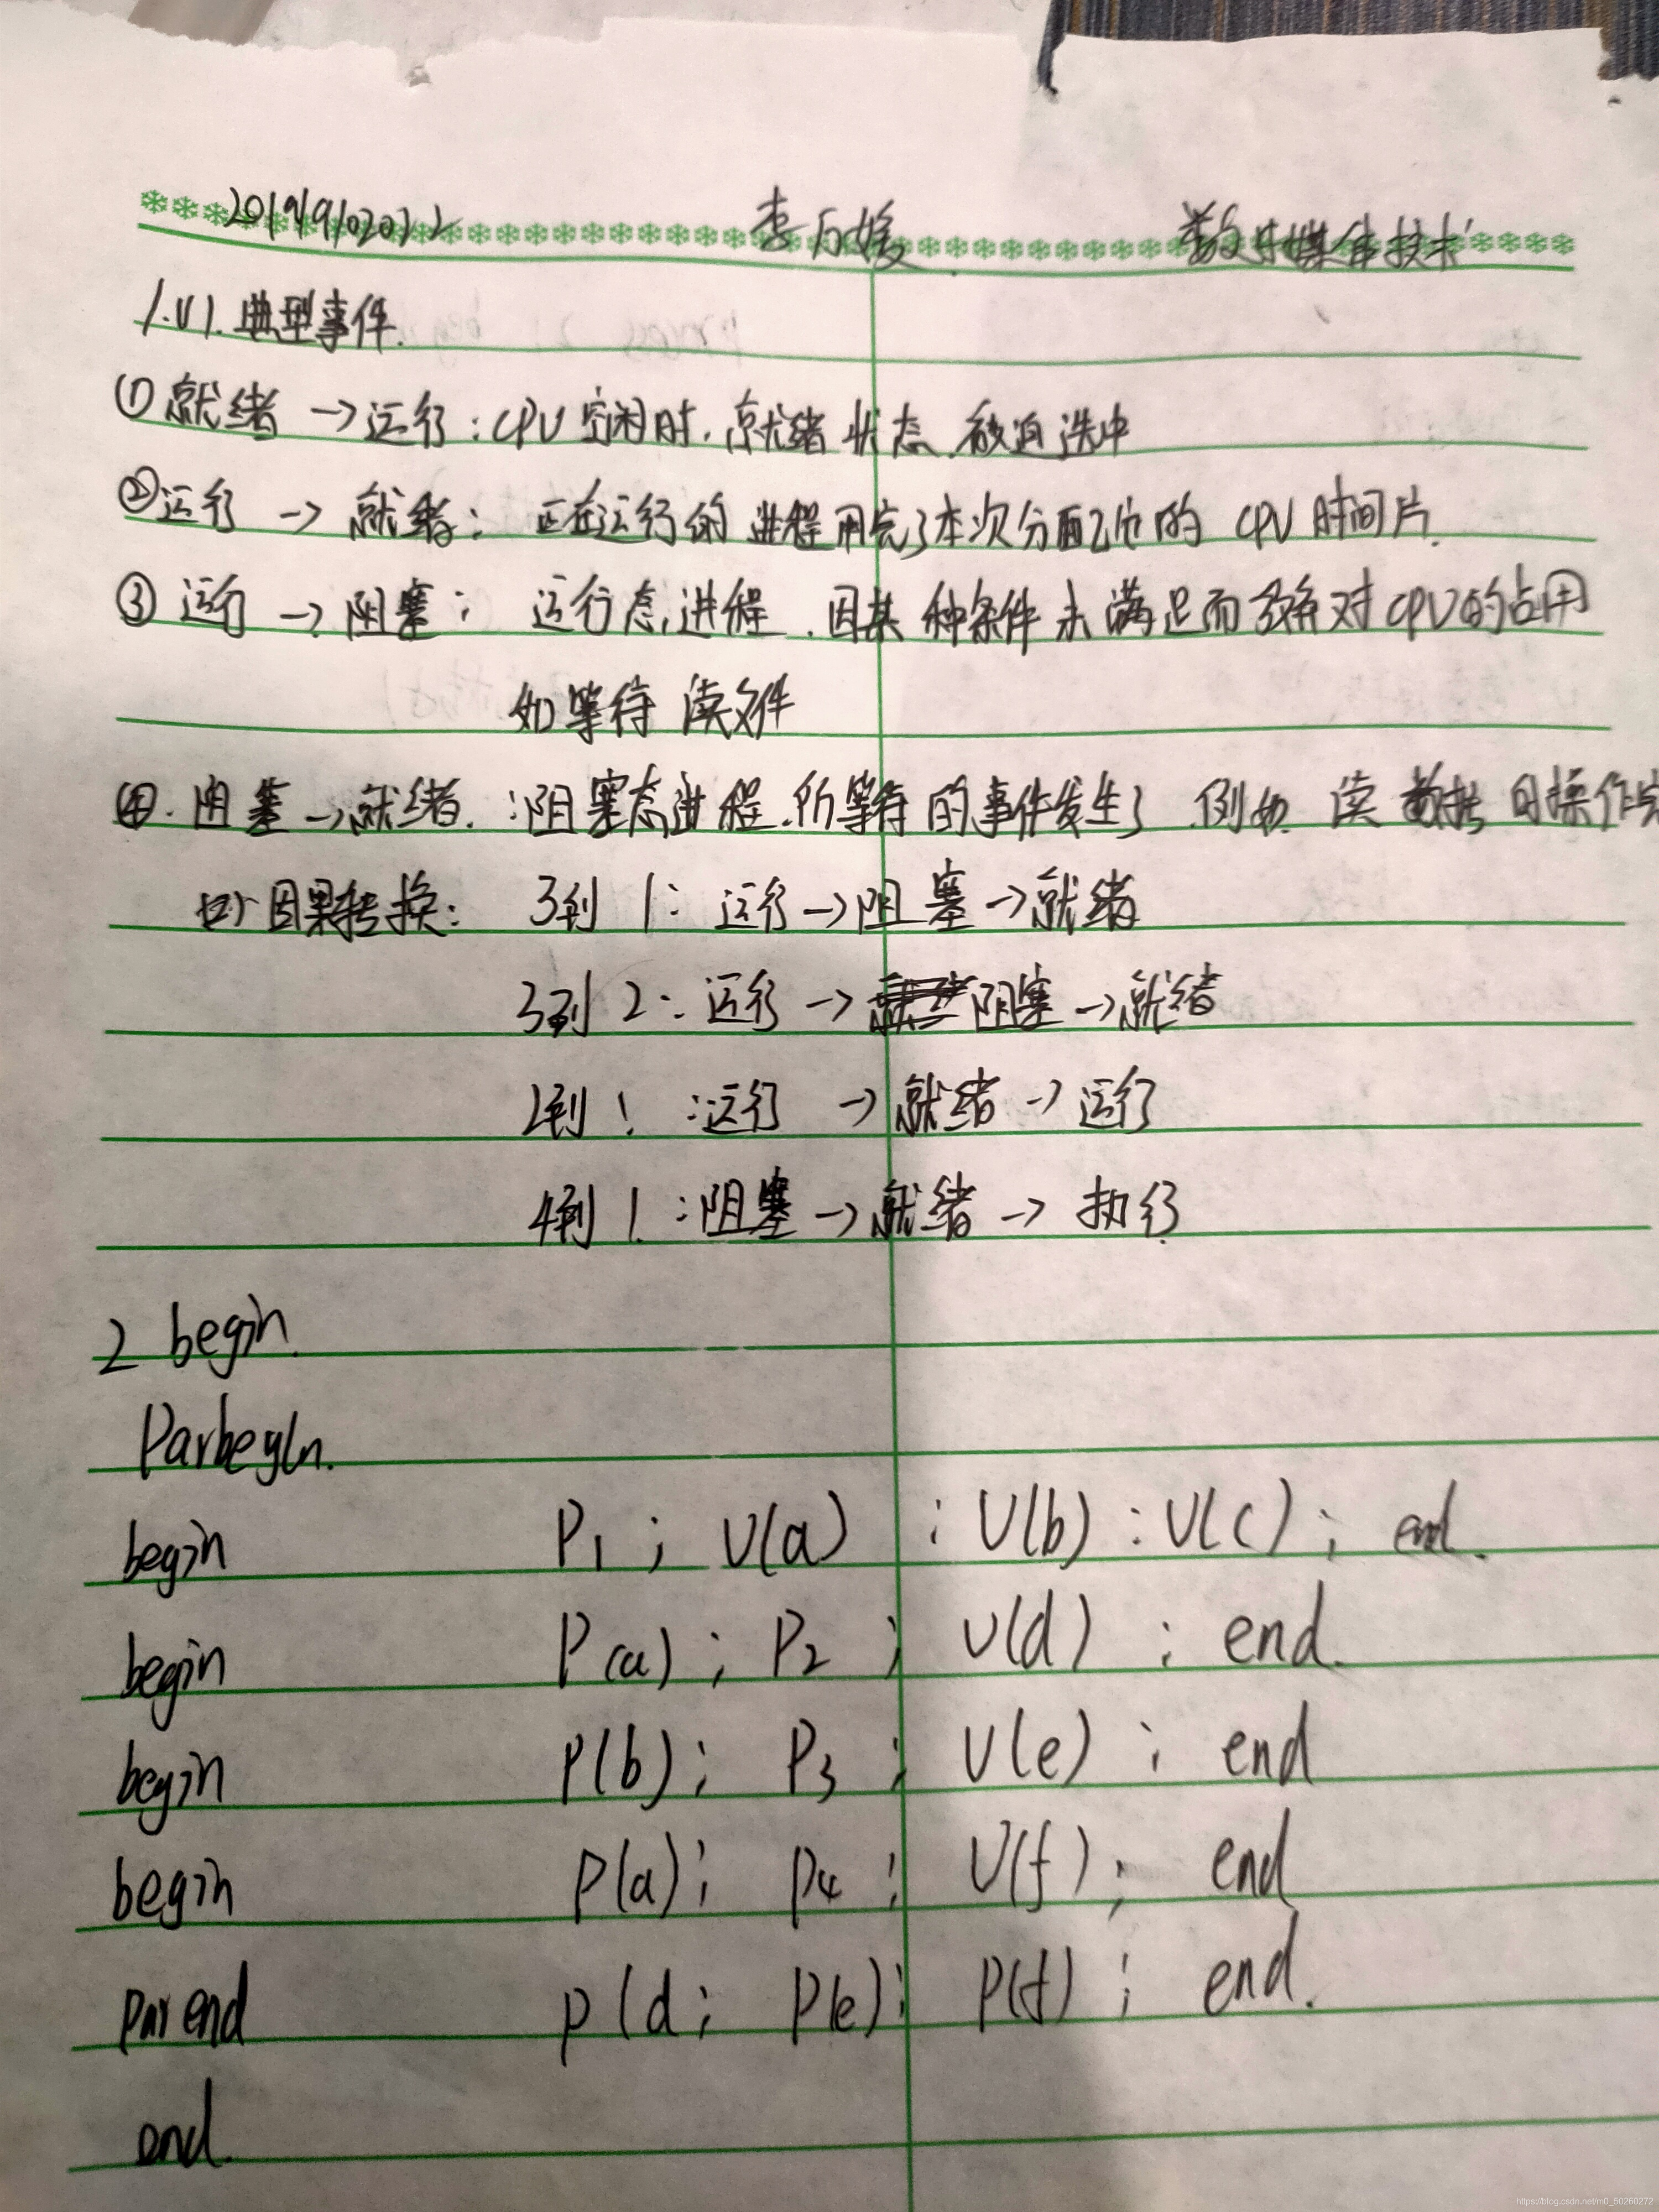 201919102022 李 媛 数字媒体技术
1.(1).典型事件.
①就绪→运行:CPU空闲时.就绪状态.被迫选中
②运行→就绪:正在运行的进程用完了本次分配给他的CPU时间片.
③运行→阻塞:运行态进程.因某种条件未满足而放弃对CPU的占用
如等待读文件
④.阻塞→就绪.:阻塞态进程.所等待的事件发生了.例如.读数据的操作完
(2)因果转换: 3到1:运行→阻塞→就绪
3到2:运行→阻塞→就绪
2到1:运行→就绪→运行
4到1:阻塞→就绪→执行
2 begin.
Parbegin.
begin P1; V(a) ; V(b) : V(c) ; end.
begin P(a) ; P2 ; V(d) ; end.
begin P(b); P3 ; V(e) ; end
begin P(a); P4 ; V(f) ; end
parend P(d; P(e); P(f) ; end.
end.
https://blog.csdn.net/m0_50260272